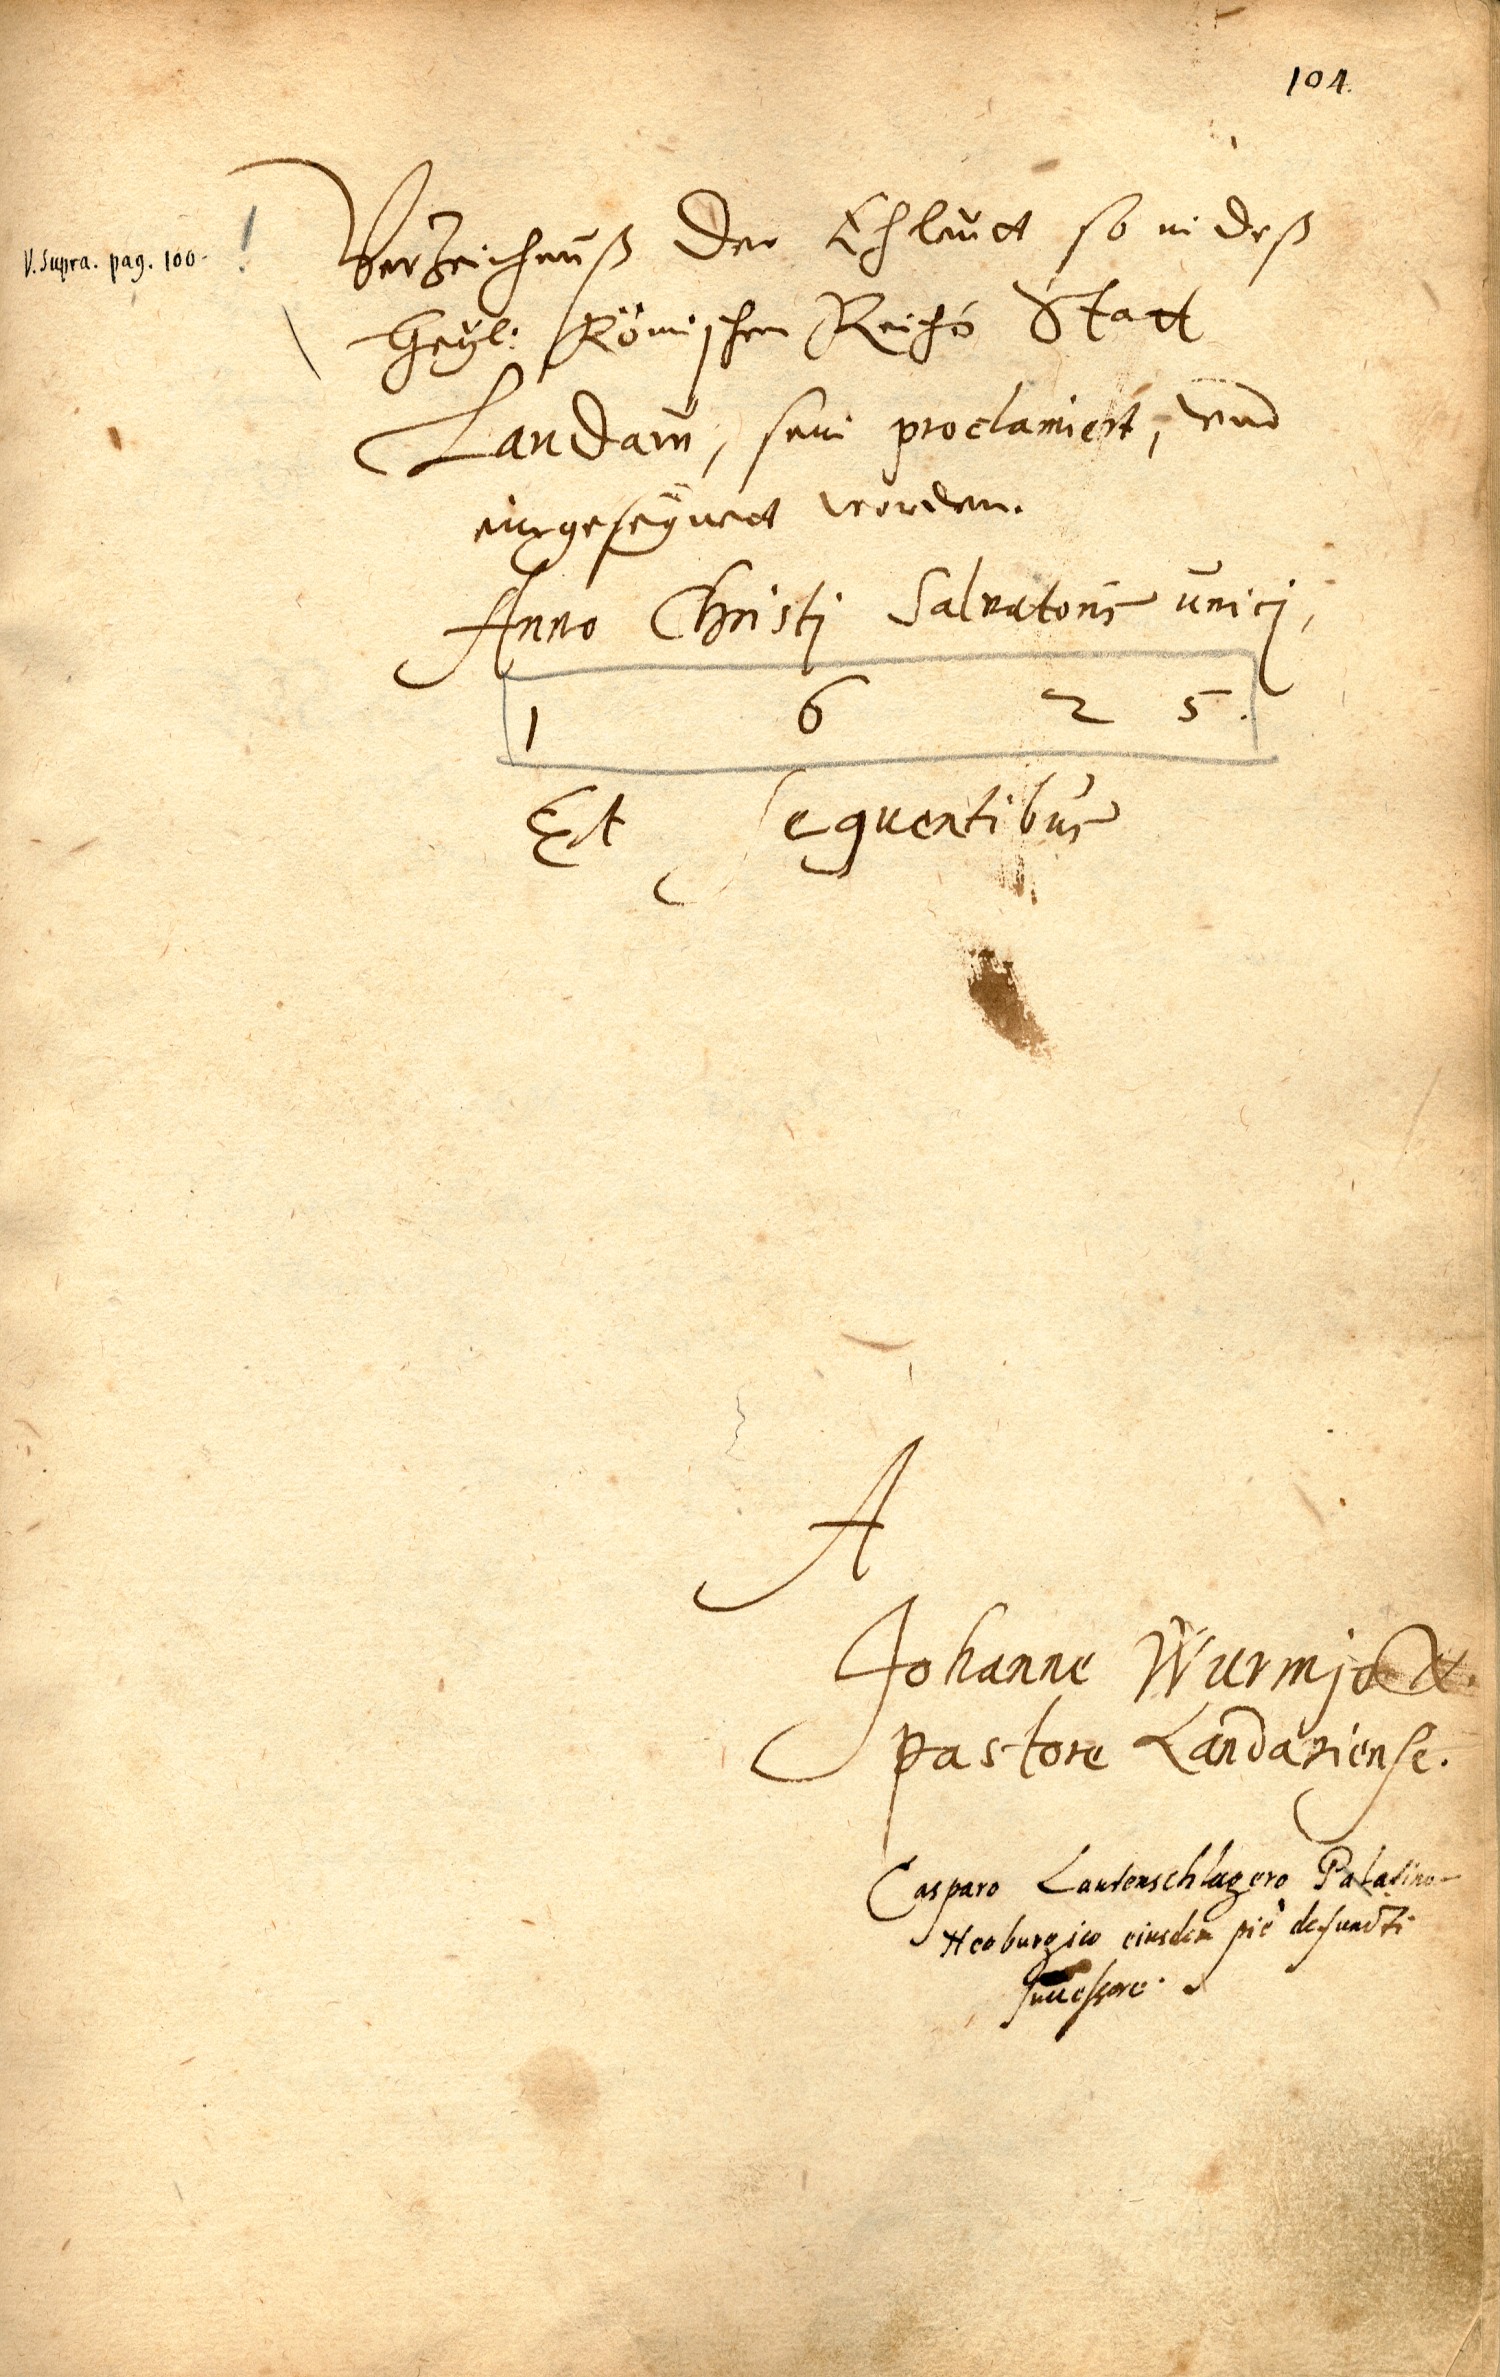 104.
V. supra. pag. 100.
Verzeichnuß der Ehleutt so in deß
Heyl: Römischen Reichs Statt
Landaw, sein proclamiert, und
eingesegnett worden.
Anno Christj Salvatoris unicj,
1 6 2 5.
Et sequentibus
A
Johanne Wurmjo
pastore Landaviense.
Casparo Lautenschlagero Palatino-
Neoburgico eiusdem piè defuncti
successore.